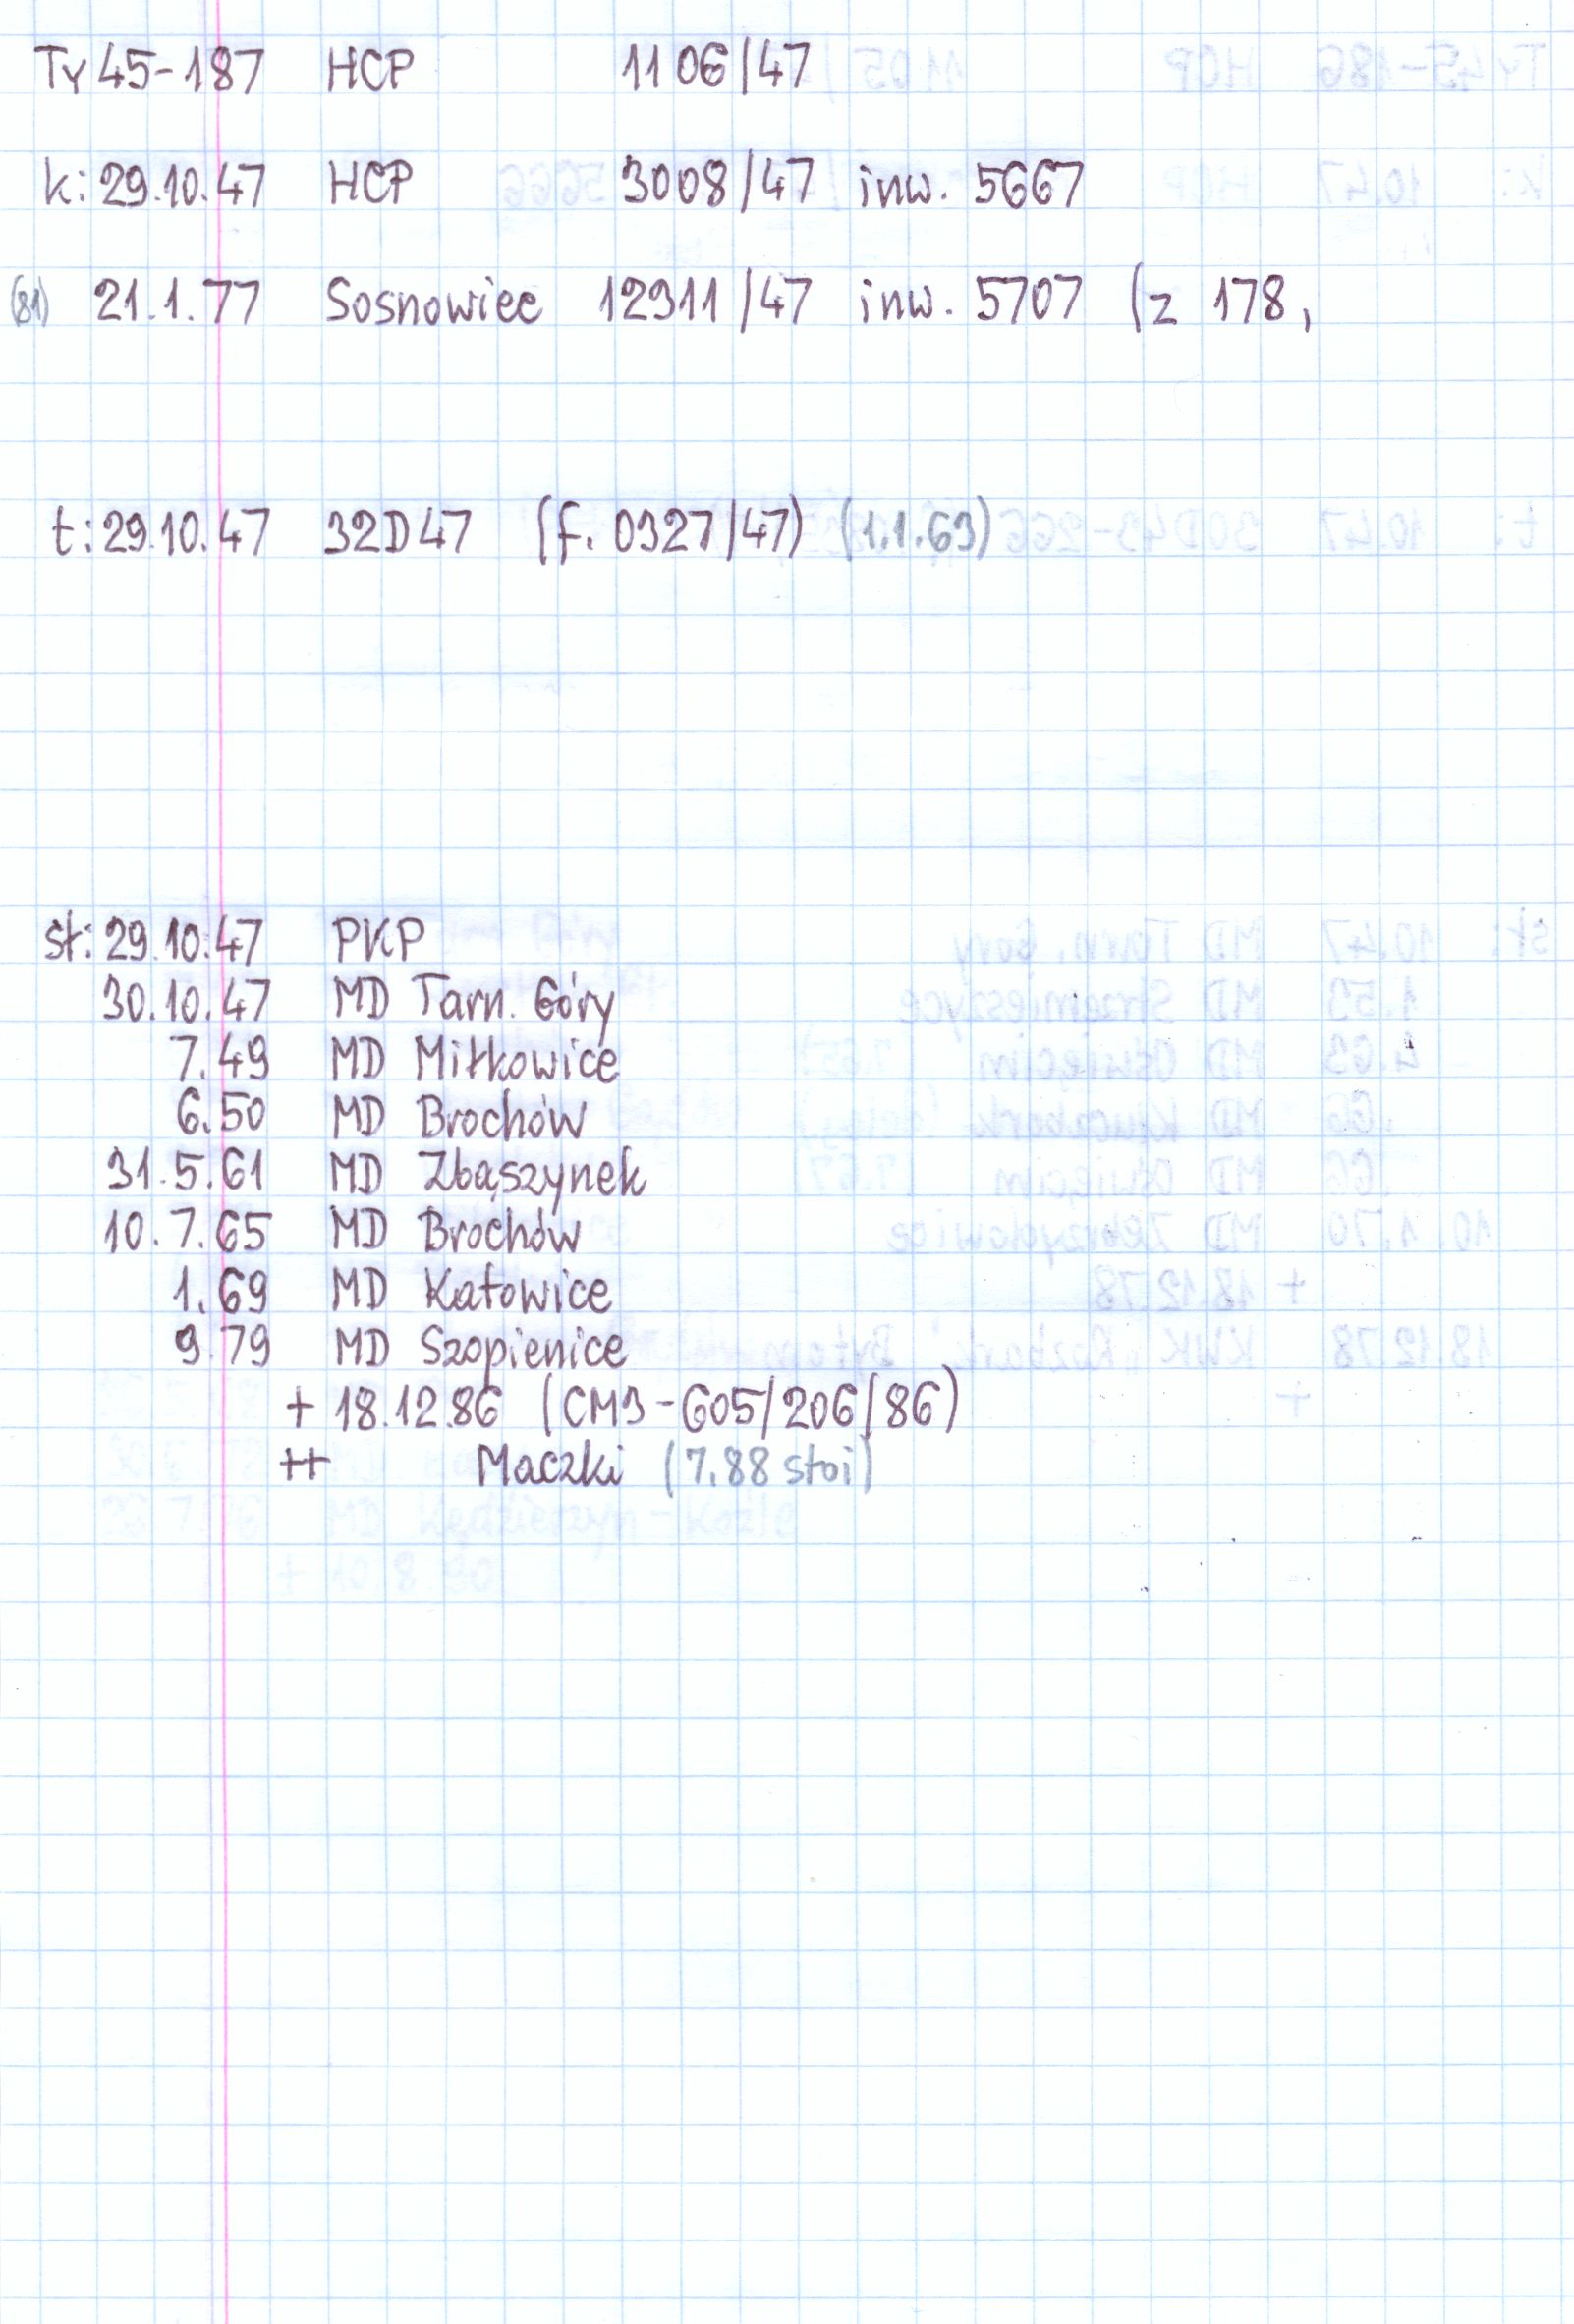 Ty45-187 HCP 1106/47
k: 29.10.47 HCP 3008/47 inw. 5667
(81) 21.1.77 Sosnowiec 12911/47 inw. 5707 (z 178,
t: 29.10.47 32D47 (f. 0327/47) (1.1.63)
st: 29.10.47 PKP
30.10.47 MD Tarn. Góry
7.49 MD Miłkowice
6.50 MD Brochów
31.5.61 MD Zbąszynek
10.7.65 MD Brochów
1.69 MD Katowice
9.79 MD Szopienice
+ 18.12.86 (CM3-605/206/86)
++ Maczki (7.88 stoi)